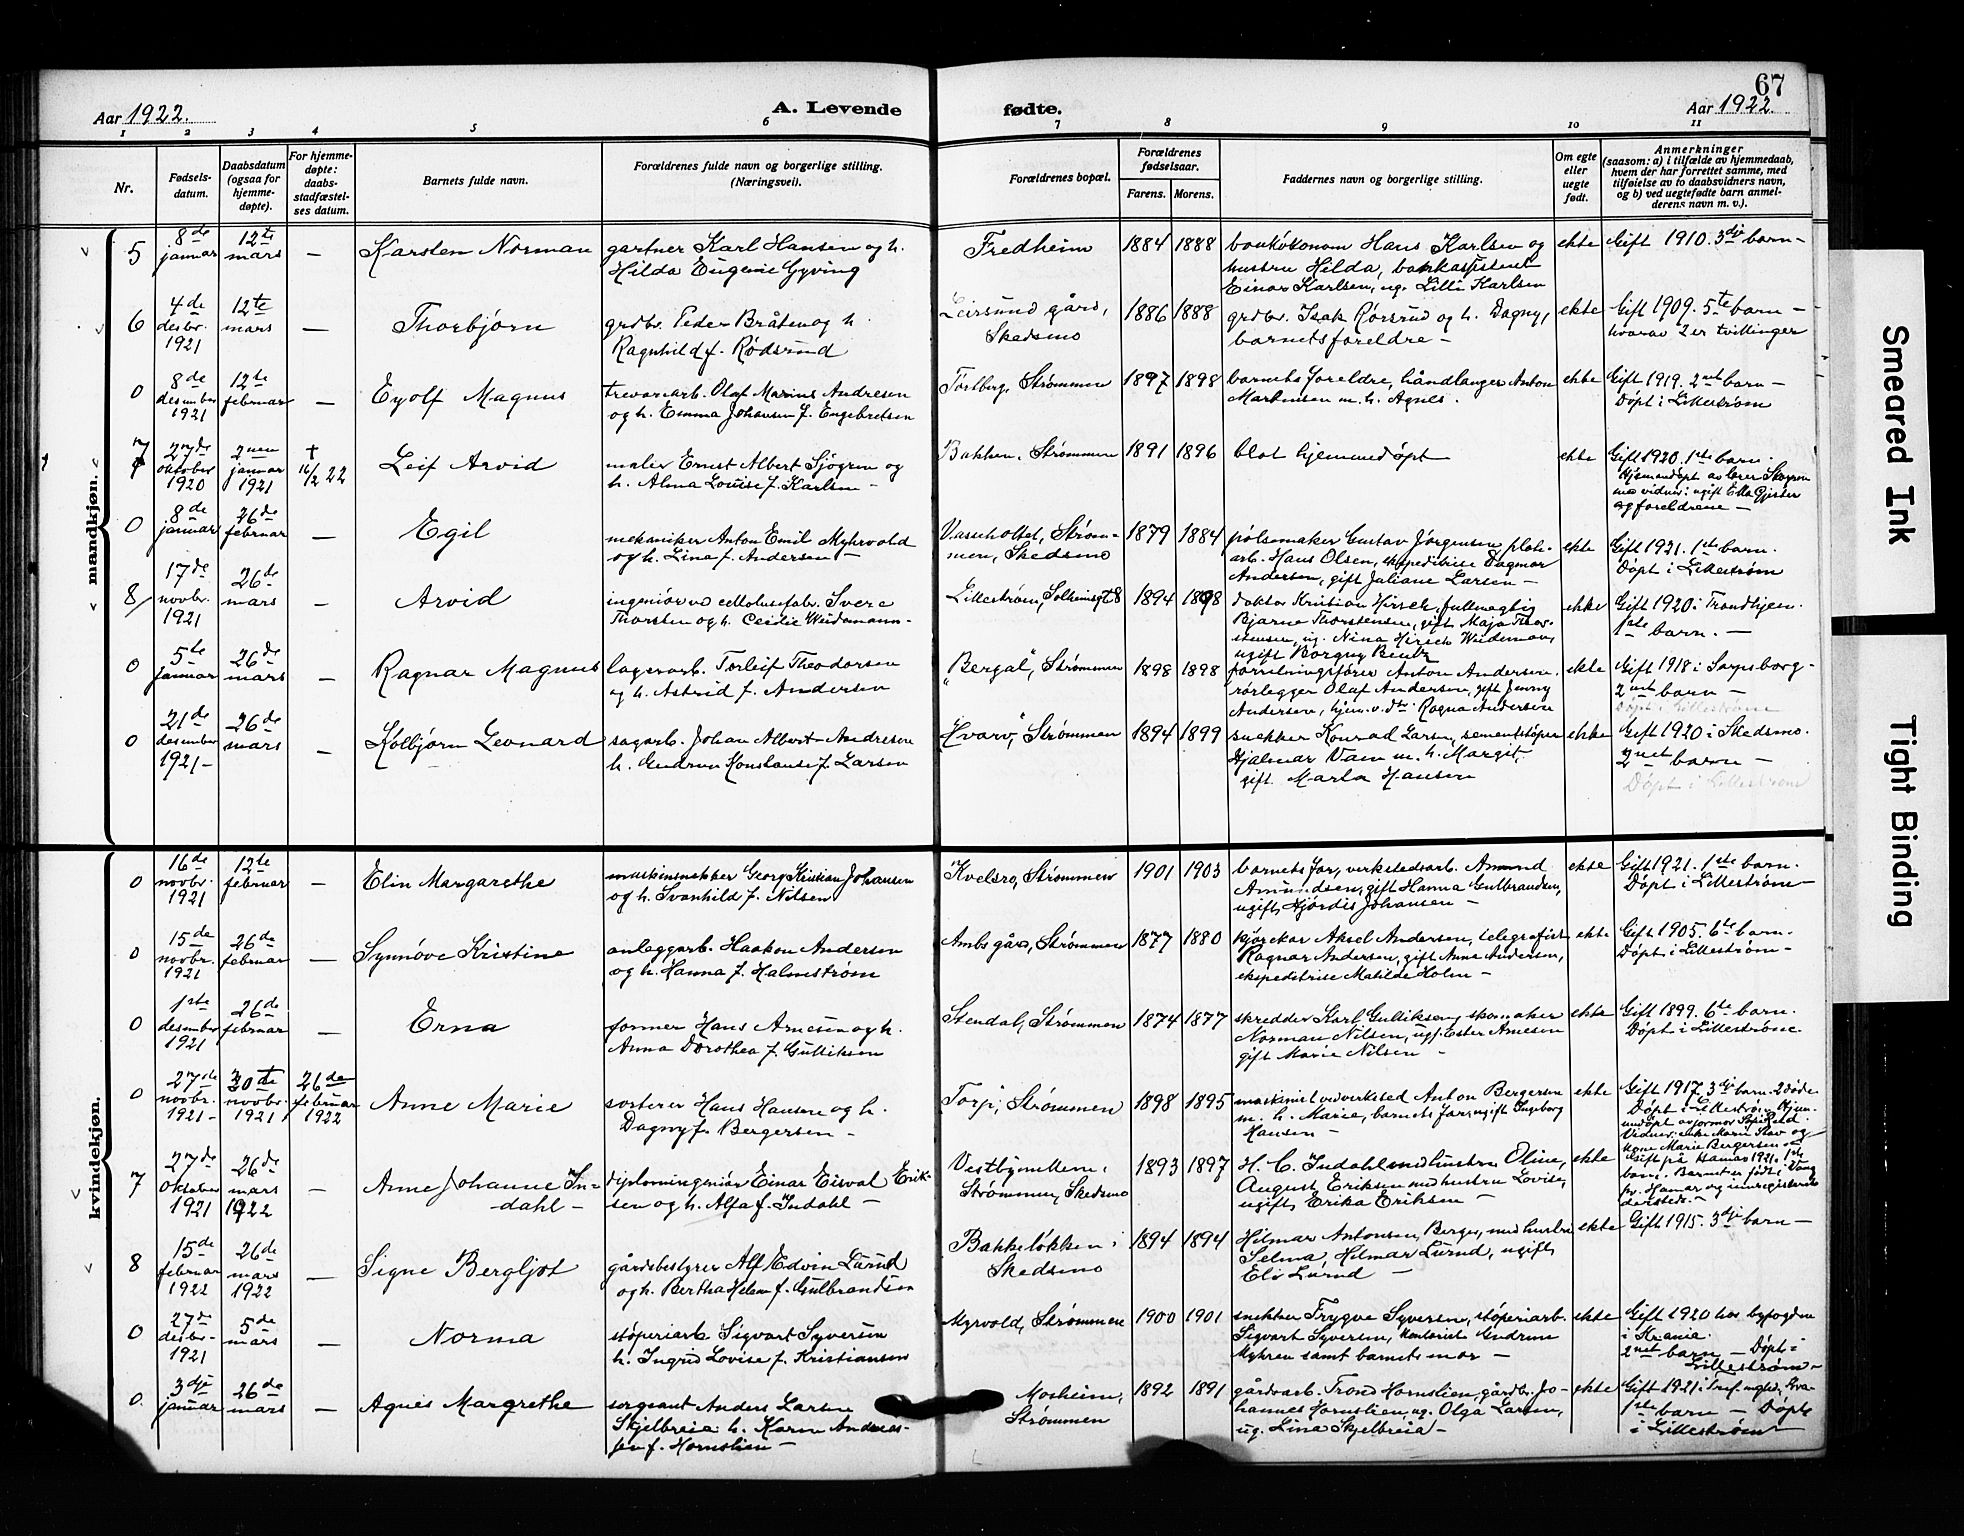 67
Aar 1922.
A. Levende
fødte.
Aar 1922.
1 2 3 4 5 6 7 8 9 10 11
Nr.
Fødsels-
datum.
Daabsdatum
(ogsaa for
hjemme-
døpte).
For hjemme-
døpte:
daabs-
stadfæstel-
ses datum.
Barnets fulde navn.
Forældrenes fulde navn og borgerlige stilling.
(Næringsvei).
Forældrenes bopæl.
Forældrenes
fødselsaar.
Farens. Morens.
Faddernes navn og borgerlige stilling.
Om egte
eller
uegte
født.
Anmerkninger
(saasom: a) i tilfælde av hjemmedaab,
hvem der har forrettet samme, med
tilføielse av to daabsvidners navn,
og b) ved uegtefødte barn anmel-
derens navn m. v.).
mandkjøn.
5
8de
januar
12te
mars
—
Karsten Norman
gartner Karl Hansen og h.
Hilda Eugenie Gyving
Fredheim
1884 1888
bankøkonom Hans Karlsen og
hustru Hilda, bankassistent
Einar Karlsen, ug. Lilli Karlsen
ekte
Gift 1910. 3dje barn —
6
4de
desbr.
1921
12te
mars
—
Thorbjørn
grdbr. Peder Bråten og h.
Ragnhild f. Rødsrud
Leirsund gård,
Skedsmo
1886 1888
grdbr. Isak Rørsrud og h. Dagny,
barnets foreldre —
ekte
Gift 1909. 5te barn —
hvorav 2 er tvillinger
0
8de
desember
1921
12te
februar
—
Eyolf Magnus
trevarearb. Olaf Marius Andresen
og h. Emma Johansen f. Engebretsen
Torlberg, Strømmen
1897 1898
barnets foreldre, håndlanger Anton
Martinsen m. h. Agnes.
ekte
Gift 1919. 2net barn —
Døpt i Lillestrøm
7
27de
oktober
1920
2nen
januar
1921
†
16/2 22
Leif Arvid
maler Ernst Albert Sjögren og
h. Alma Louise f. Karlsen —
Bakken, Strømmen
1891 1896
blot hjemmedøpt
ekte
Gift 1920. 1ste barn.
Hjemmedøpt av lærer
med vidner: ugift Ella Gjester
og foreldrene —
0
8de
januar
26de
februar
—
Egil
mekaniker Anton Emil Myhrvold
og h. Lina f. Andersen —
Vasseholtet, Strøm-
men, Skedsmo
1879 1884
pølsemaker Gustav Jørgensen, plate-
arb. Hans Olsen, ekspeditrise Dagmar
Andersen, gift Juliane Larsen —
ekte
Gift 1921. 1ste barn.
Døpt i Lillestrøm
8
17de
novbr.
1921
26de
mars
—
Arvid
ingeniør ved cellulosefabr. Svere
Thorsten og h. Cecilie Weidemann —
Lillestrøm, Solheimsgt 8
1894 1898
doktor Kristian Hirsch, fullmegtig
Bjarne Thorstensen, gift Maja Thor-
stensen, ug. Nina Hirsch Weideman,
ugift Borgny Bentz
ekte
Gift 1920 i Trondhjem.
1ste barn. —
0
5te
januar
26de
mars
—
Ragnar Magnus
lagerarb. Torleif Theodorsen
og h. Astrid f. Andersen
"Bergal", Strømmen
1898 1898
forretningsfører Anton Andersen.
rørlegger Olaf Andersen, gift Jenny
Andersen, hjem. v. dtr. Ragna Andersen
ekte
Gift 1918 i Sarpsborg —
2net barn —
Døpt i Lillestrøm
0
21de
desember
1921 —
26de
mars
—
Kolbjørn Leonard
sagarb. Johan Albert Andresen
h. Gudrun Konstanse f. Larsen
"Hvarv", Strømmen
1894 1899
snekker Konrad Larsen, sementstøper
Hjalmar Vam m. h. Margit,
gift Marla Hansen
ekte
Gift 1920 i Skedsmo.
2net barn —
Døpt i Lillestrøm
kvindekjøn.
0
16de
novbr.
1921
12te
februar
—
Elin Margarethe
maskinsnekker Georg Kristian Johansen
og h. Svanhild f. Nilsen
Kvelsro, Strømmen
1901 1903
barnets far, verkstedsarb. Amund
Amundsen, gift Hanna Gulbrandsen,
ugift Hjørdis Johansen —
ekte
Gift 1921. 1ste barn.
Døpt i Lillestrøm —
0
15de
novbr.
1921
26de
februar
—
Synnöve Kristine
anleggarb. Haakon Andersen
og h. Hanna f. Halmstrøm
Ambs gård, Strømmen
1877 1880
kjørekar Aksel Andersen, telegrafist
Ragnar Andersen, gift Anna Andersen,
ekspeditrise Matilde Holm —
ekte
Gift 1905. 6te barn.
Døpt i Lillestrøm —
0
1ste
desember
1921
26de
februar
—
Erna
former Hans Arnesen og h.
Anna Dorothea f. Gulliksen
Stendal, Strømmen
1874 1877
skredder Karl Gulliksen, skomaker
Norman Nilsen, ugf. Ester Arnesen
gift Marie Nilsen —
ekte
Gift 1899. 6te barn.
Døpt i Lillestrøm
0
27de
novbr.
1921 —
30te
novbr.
1921
26de
februar
1922
Anne Marie
sorterer Hans Hansen og h.
Dagny f. Bergersen —
Torp, Strømmen
1898 1895
maskinist ved verksted Anton Bergersen
m. h. Marie, barnets far, ugift Ingeborg
Hansen —
ekte
Gift 1917. 3dje barn. 2 døde
Døpt i Lillestrøm. Hjem-
medøpt av jormor
Vidner: enke Marie Stav og
kone Marie Bergersen —
7
27de
oktober
1921
26de
mars
1922
—
Anne Johanne In-
dahl —
diplomingeniør Einar Eisval Erik-
sen og h. Alfa f. Indahl —
Vestbymellem,
Strømmen, Skedsmo
1893 1897
H. C. Indahl med hustru Oline,
August Eriksen med hustru Lovise,
ugift Erika Eriksen —
ekte
Gift på Hamar 1921. 1ste
barn. Barnet er født i Vang
pr. Hamar og innregistrert
dersteds. —
8
15de
februar
1922
26de
mars
1922
—
Signe Bergljot
gårdsbestyrer Alf Edvin Lurud
og h. Bertha Helene f. Gulbrandsen
Bakkeløkken i
Skedsmo
1894 1894
Hilmar Antonsen, Berger, med hustru
Selma, Hilmar Lurud, ugift
Eli Lurud —
ekte
Gift 1915. 3dje barn —
0
27de
desbr. —
1921
5de
mars
—
Norma
støperiarb Sigvart Syversen
h. Ingrid Lovise f. Kristiansen
Myrvold, Strømmen
1900 1901
snekker Trygve Syversen, støperiarb.
Sigvart Syversen, kontorist Gudrun
Myhren samt barnets mor —
ekte
Gift 1920 hos byfogden
i Krania.
2net barn — Døpt i
Lillestrøm —
0
3dje
januar
26de
mars
—
Agnes Margrethe
sergeant Anders Larsen
Skjelbreia h. Karen Andreas-
sen f. Hornslien —
Mosheim,
Strømmen
1892 1891
gårdsarb. Trond Hornslien, gårdbr. Jo-
hannes Hornslien, ug. Olga Larsen,
ug. Lina Skjelbreia —
ekte
Gift 1921 i Tref. mgld. Sva-
1ste barn — Døpt
i Lillestrøm
Smeared Ink
Tight Binding